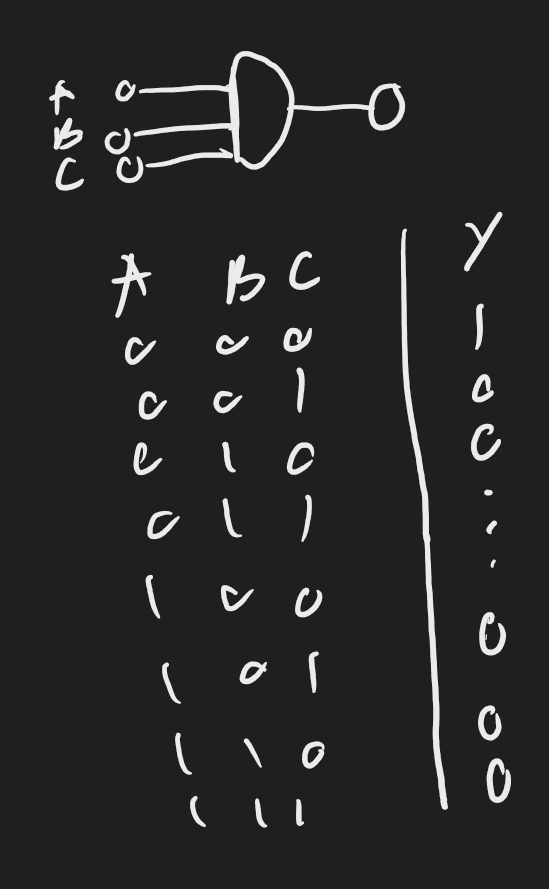 A
B
C
A B C Y
0 0 0 1
0 0 1 0
0 1 0 0
0 1 1 .
1 0 0 0
1 0 1
1 1 0 0
1 1 1 0